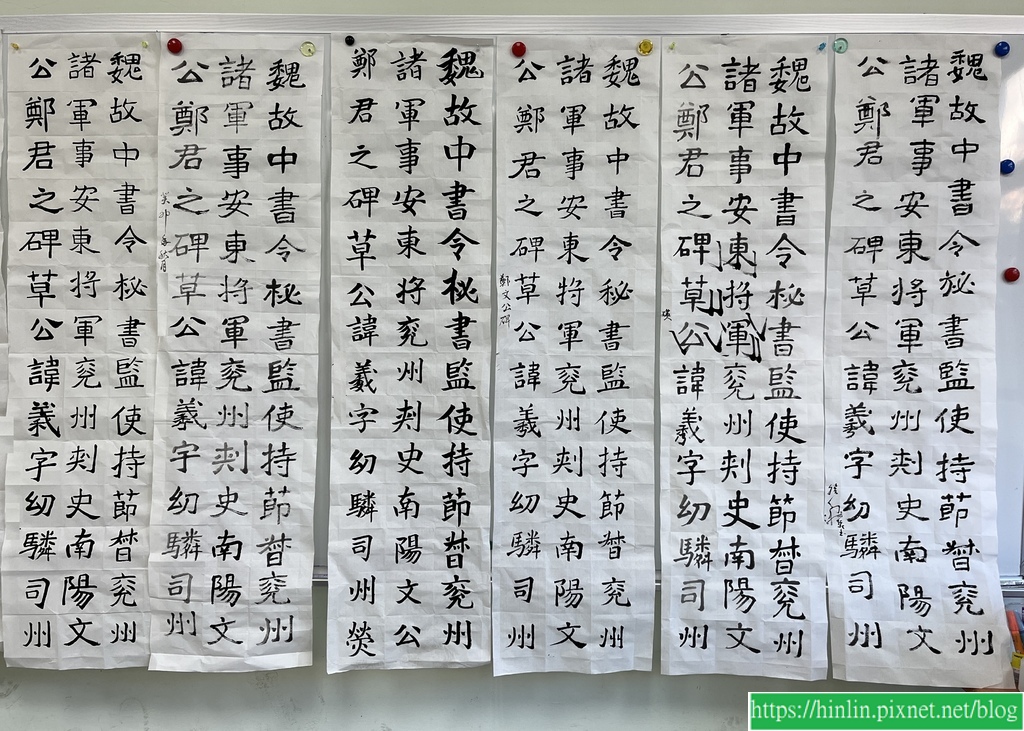 魏故中書令秘書監使持節督兗州
諸軍事安東將軍兗州刺史南陽文
公鄭君之碑草公諱羲字幼驎司州
魏故中書令秘書監使持節督兗州
諸軍事安東將軍兗州刺史南陽文
公鄭君之碑草公諱羲字幼驎司州
魏故中書令秘書監使持節督兗州
諸軍事安東將軍兗州刺史南陽文
公鄭君之碑草公諱羲字幼驎司州
鄭文公碑
魏故中書令秘書監使持節督兗州
諸軍事安東將兗州刺史南陽文公
鄭君之碑草公諱羲字幼驎司州熒
魏故中書令秘書監使持節督兗州
諸軍事安東將軍兗州刺史南陽文
公鄭君之碑草公諱羲字幼驎司州
癸卯 秋月
魏故中書令秘書監使持節督兗州
諸軍事安東將軍兗州刺史南陽文
公鄭君之碑草公諱羲字幼驎司州
https://hinlin.pixnet.net/blog